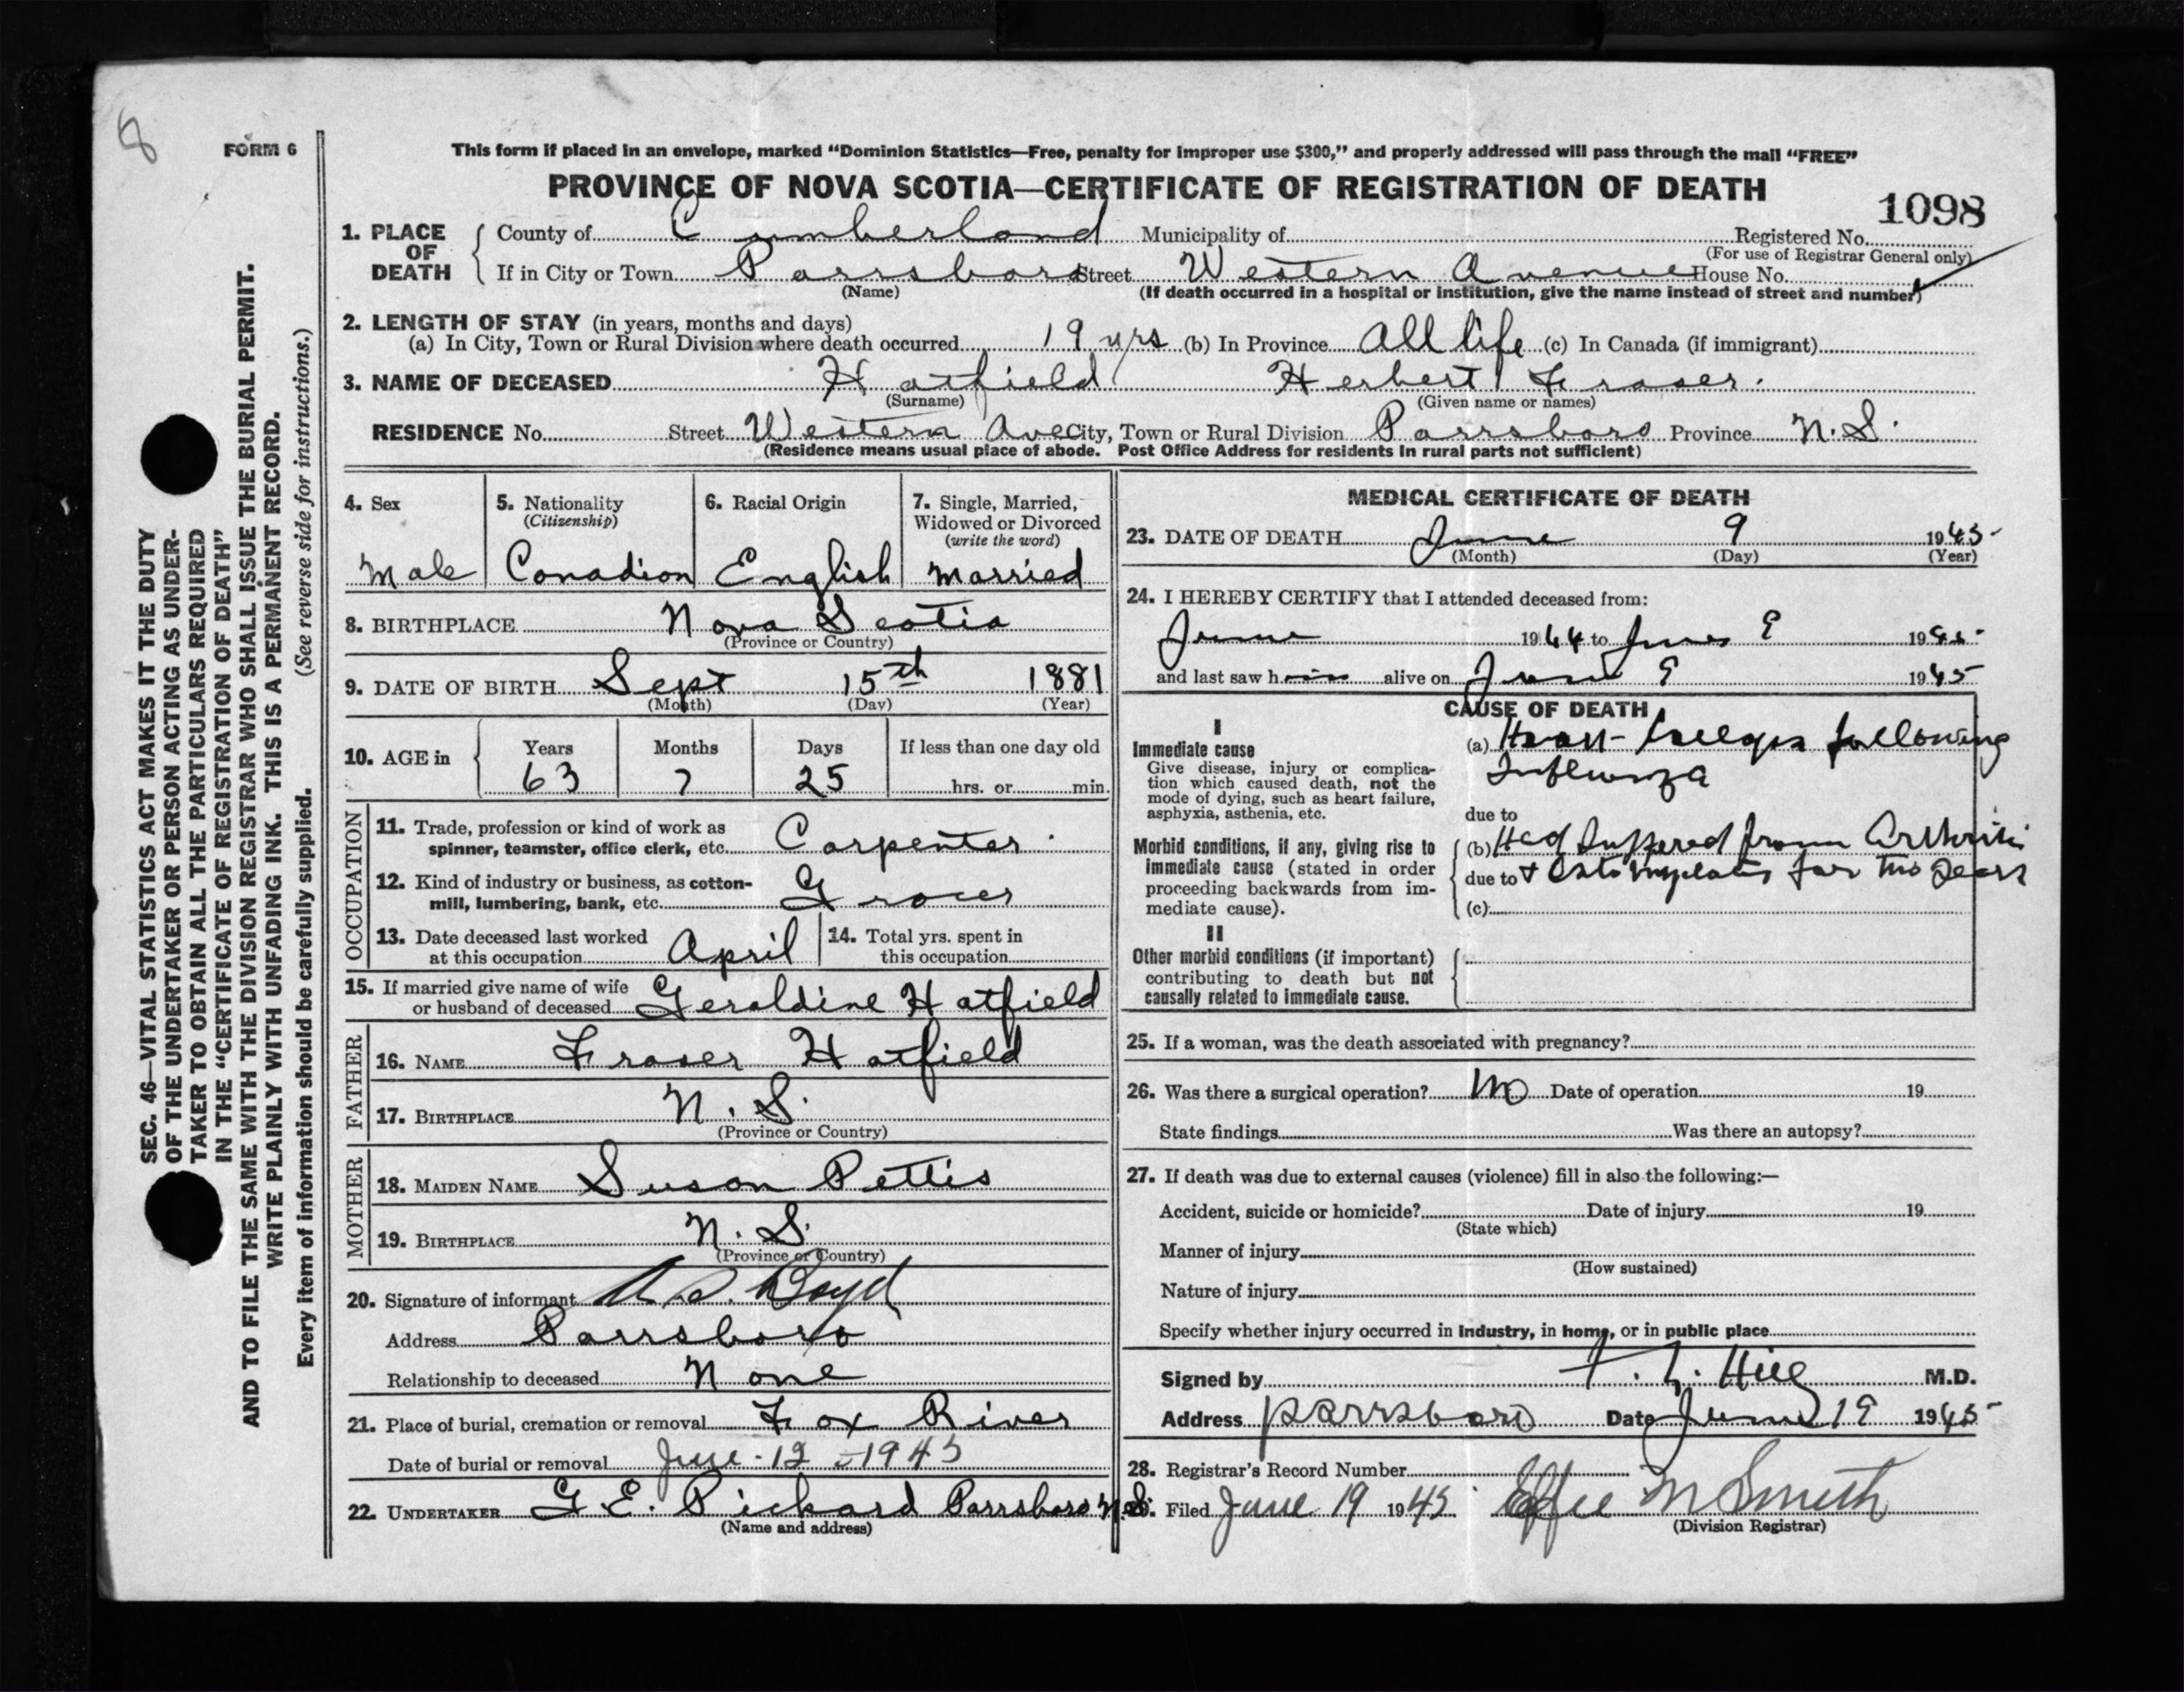 8
FORM 6
This form if placed in an envelope, marked "Dominion Statistics—Free, penalty for improper use $300," and properly addressed will pass through the mail "FREE"
PROVINCE OF NOVA SCOTIA—CERTIFICATE OF REGISTRATION OF DEATH
1098
1. PLACE OF DEATH
County of Cumberland Municipality of Registered No.
(For use of Registrar General only)
If in City or Town Parrsboro Street Western Avenue House No.
(Name) (If death occurred in a hospital or institution, give the name instead of street and number)
2. LENGTH OF STAY (in years, months and days)
(a) In City, Town or Rural Division where death occurred 19 yrs (b) In Province All life (c) In Canada (if immigrant)
3. NAME OF DECEASED Hatfield Herbert Fraser.
(Surname) (Given name or names)
RESIDENCE No. Street Western Ave City, Town or Rural Division Parrsboro Province N.S.
(Residence means usual place of abode. Post Office Address for residents in rural parts not sufficient)
SEC. 46—VITAL STATISTICS ACT MAKES IT THE DUTY
OF THE UNDERTAKER OR PERSON ACTING AS UNDER-
TAKER TO OBTAIN ALL THE PARTICULARS REQUIRED
IN THE "CERTIFICATE OF REGISTRATION OF DEATH"
AND TO FILE THE SAME WITH THE DIVISION REGISTRAR WHO SHALL ISSUE THE BURIAL PERMIT.
WRITE PLAINLY WITH UNFADING INK. THIS IS A PERMANENT RECORD.
Every item of information should be carefully supplied. (See reverse side for instructions.)
4. Sex
Male
5. Nationality
(Citizenship)
Canadian
6. Racial Origin
English
7. Single, Married,
Widowed or Divorced
(write the word)
Married
8. BIRTHPLACE Nova Scotia
(Province or Country)
9. DATE OF BIRTH Sept 15th 1881
(Month) (Day) (Year)
10. AGE in
Years Months Days If less than one day old
63 7 25 hrs. or min.
OCCUPATION
11. Trade, profession or kind of work as
spinner, teamster, office clerk, etc. Carpenter
12. Kind of industry or business, as cotton-
mill, lumbering, bank, etc. Grocer
13. Date deceased last worked
at this occupation April
14. Total yrs. spent in
this occupation
15. If married give name of wife
or husband of deceased Geraldine Hatfield
FATHER
16. NAME Fraser Hatfield
17. BIRTHPLACE N.S.
(Province or Country)
MOTHER
18. MAIDEN NAME Susan Pettis
19. BIRTHPLACE N.S.
(Province or Country)
20. Signature of informant Boyd
Address Parrsboro
Relationship to deceased None
21. Place of burial, cremation or removal Fox River
Date of burial or removal June - 12 - 1945
22. UNDERTAKER G.E. Pickard Parrsboro N.S.
(Name and address)
MEDICAL CERTIFICATE OF DEATH
23. DATE OF DEATH June 9 1945
(Month) (Day) (Year)
24. I HEREBY CERTIFY that I attended deceased from:
June 1944 to June 9 1945
and last saw him alive on June 9 1945
CAUSE OF DEATH
I
Immediate cause
Give disease, injury or complica-
tion which caused death, not the
mode of dying, such as heart failure,
asphyxia, asthenia, etc.
(a) Heart following
Influenza
due to
Morbid conditions, if any, giving rise to
immediate cause (stated in order
proceeding backwards from im-
mediate cause).
(b) Had suffered from Arthritis
due to + for two years
(c)
II
Other morbid conditions (if important)
contributing to death but not
causally related to immediate cause.
25. If a woman, was the death associated with pregnancy?
26. Was there a surgical operation? No Date of operation 19
State findings Was there an autopsy?
27. If death was due to external causes (violence) fill in also the following:—
Accident, suicide or homicide? Date of injury 19
(State which)
Manner of injury
(How sustained)
Nature of injury
Specify whether injury occurred in industry, in home, or in public place
Signed by Hill M.D.
Address Parrsboro Date June 19 1945
28. Registrar's Record Number
Filed June 19 1945 Effie M Smith
(Division Registrar)